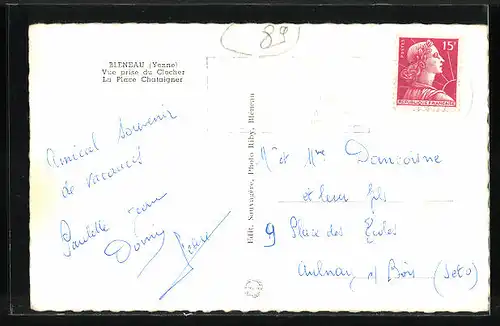 (89)
BLENEAU (Yonne)
Vue prise du Clocher
La Place Chataigner
POSTES 15F
REPUBLIQUE FRANÇAISE
Amical Souvenir
de vacances
Paulette Jean
Edit. Sauvagère, Photo Riby, Bléneau
Mr et Mme Dancoine
et leur fils
9 Place des Ecoles
Aulnay s/ Bois (Seto)